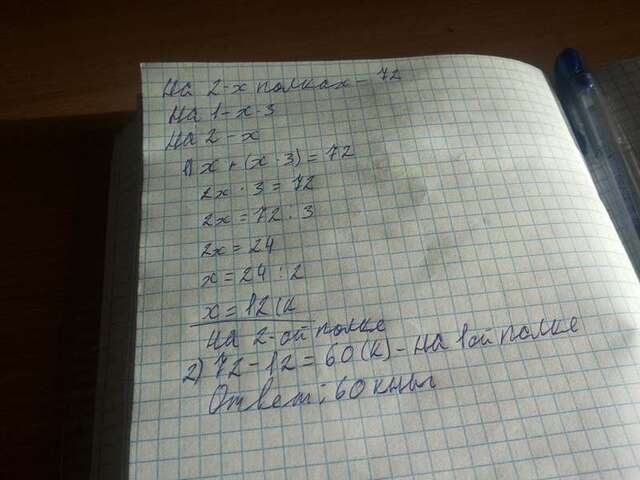 На 2-х полках - 72
На 1 - х · 3
На 2 - х
1) х + (х · 3) = 72
2х · 3 = 72
2х = 72 : 3
2х = 24
х = 24 : 2
х = 12 (к
на 2-ой полке
2) 72 - 12 = 60 (к) - на 1ой полке
Ответ: 60 книг